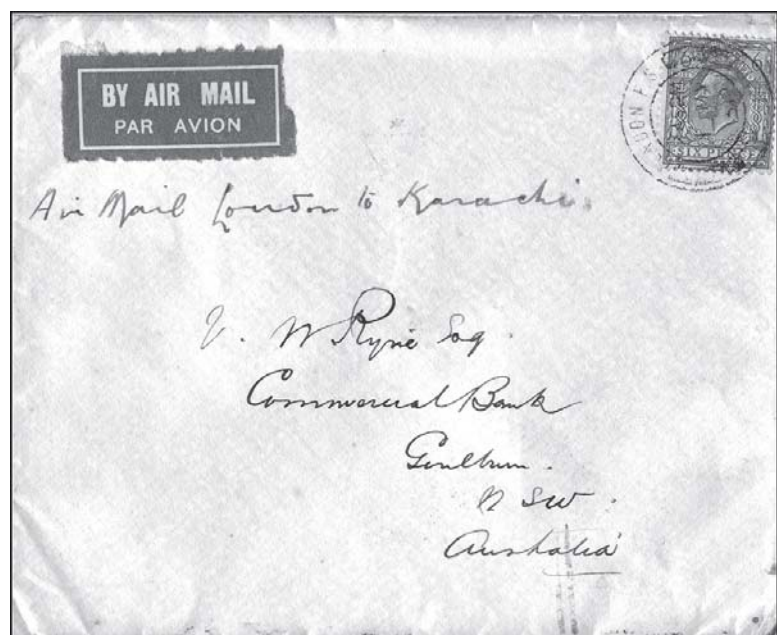 BY AIR MAIL
PAR AVION
SIX PENCE
Air Mail London to Karachi.
V. W Ryrie Esq.
Commercial Bank
Goulburn.
N SW.
Australia